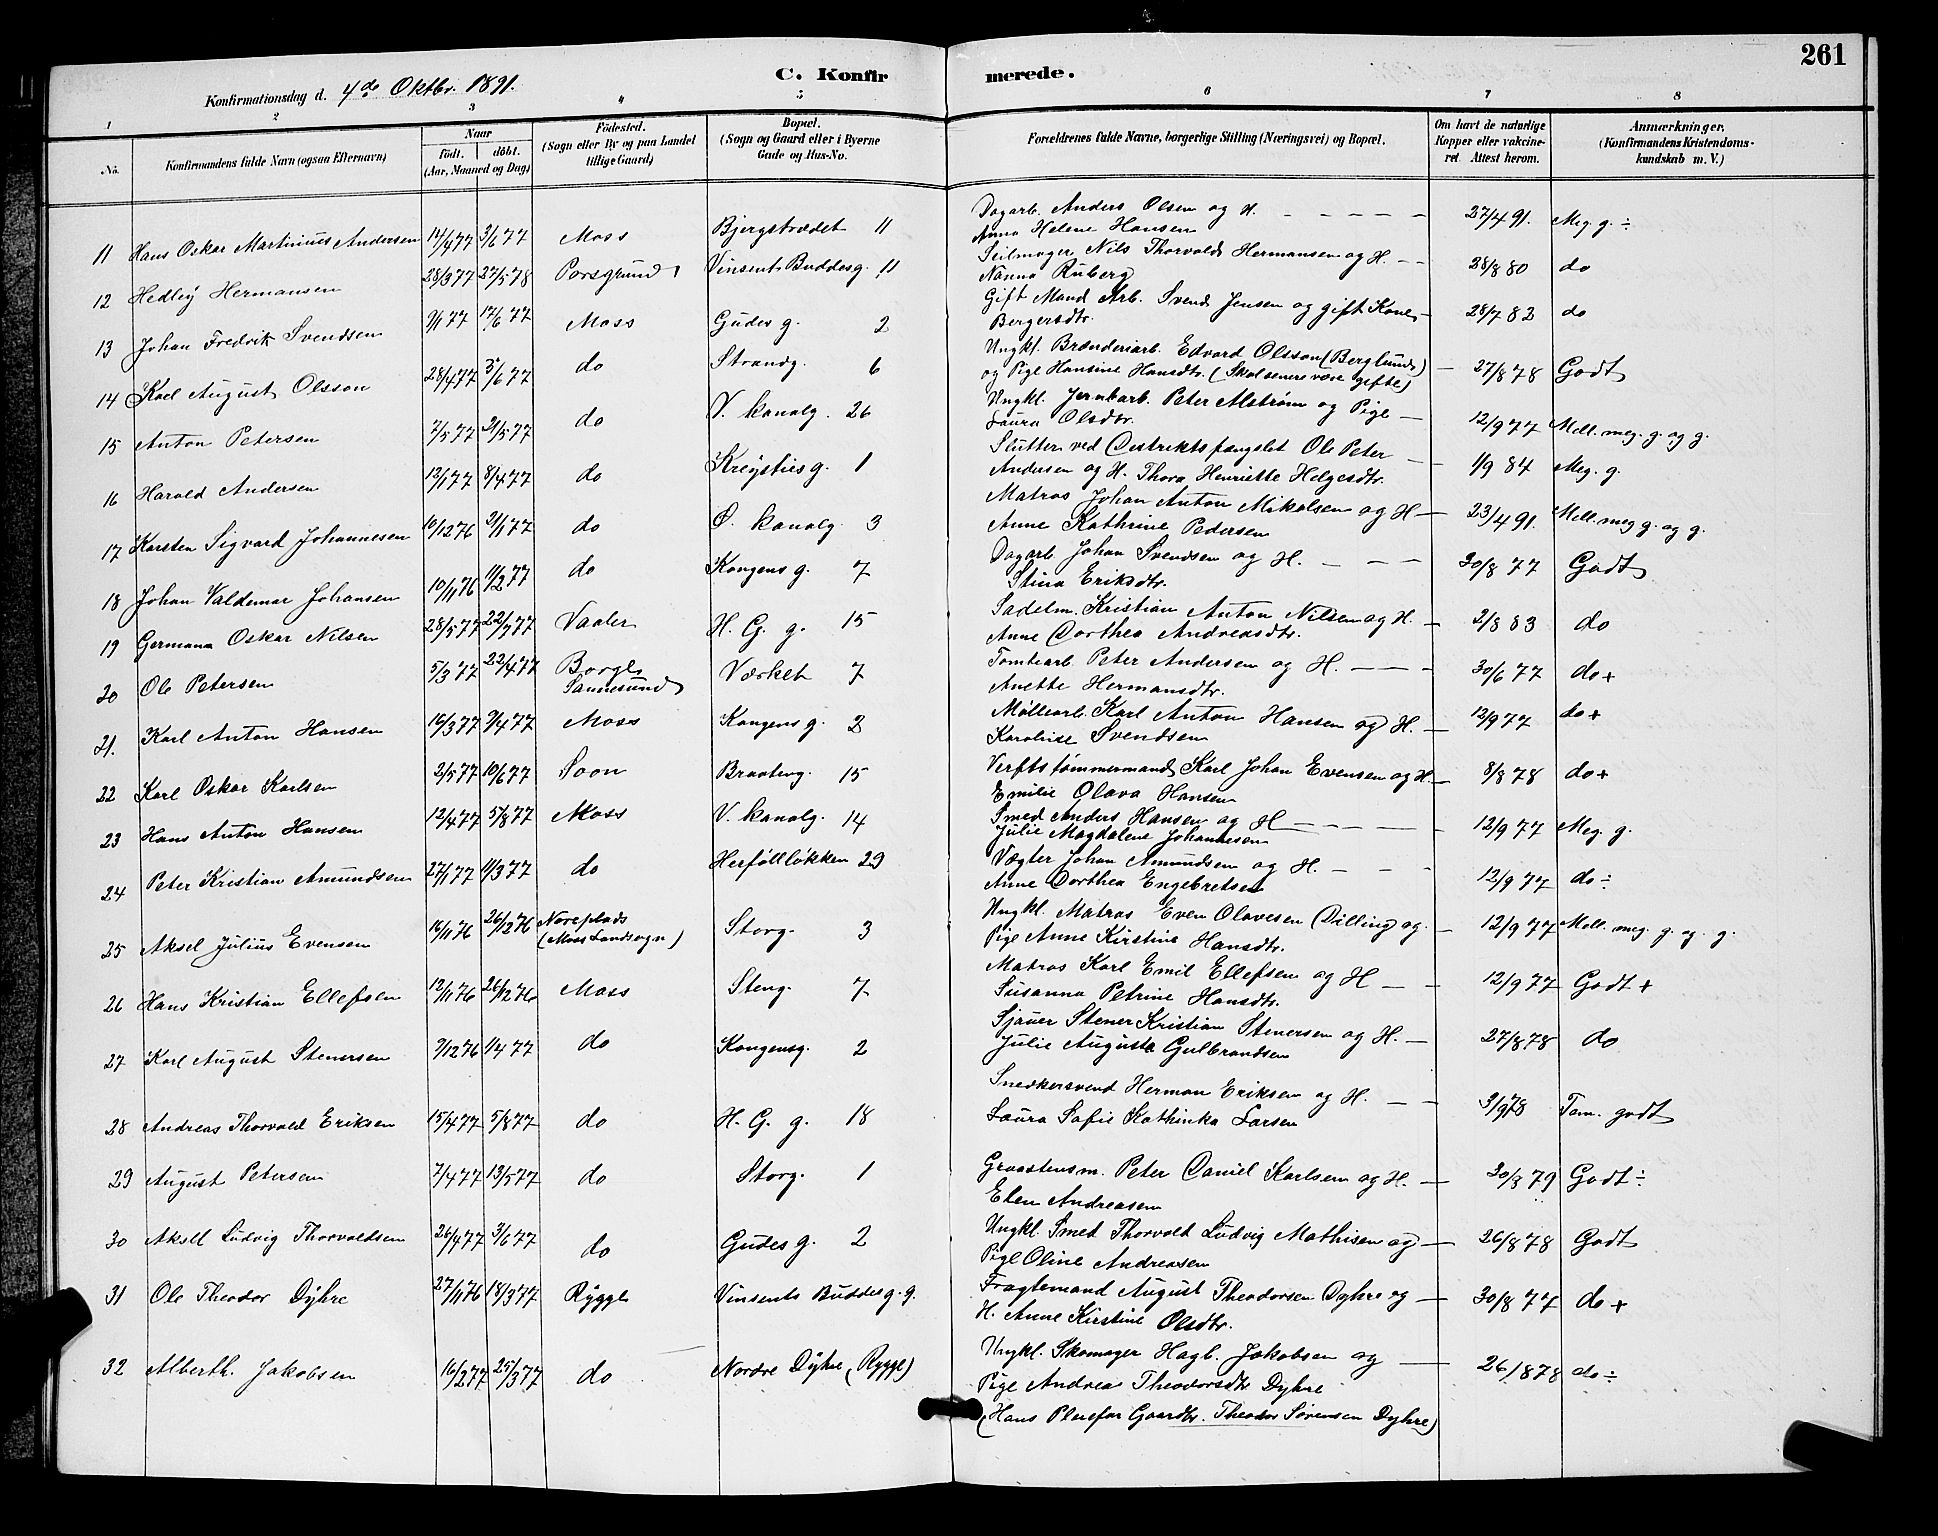 261
C. Konfirmerede.
Konfirmationsdag d. 4de Oktbr. 1891.
1 2 3 4 5 6 7 8
No. Konfirmandens fulde Navn (ogsaa Efternavn) Naar født. døbt. (Aar, Maaned og Dag) Fødested. (Sogn eller By og paa Landet tillige Gaard) Bopæl. (Sogn og Gaard eller i Byerne Gade og Hus-No. Forældrenes fulde Navne, borgerlige Stilling (Næringsvei) og Bopæl. Om havt de naturlige Kopper eller vakcineret Attest herom. Anmærkninger. (Konfirmandens Kristendomskundskab m. V.)
11 Hans Oskar Martinius Andersen 14/4 77 3/6 77 Moss Bjergstrædet 11 Dagarb. Anders Olsen og H. 27/4 91. Meg. g. ÷
Anna Helene Hansen
12 Hedley Hermansen 28/9 77 27/5 78 Porsgrund Vinsent Buddesg. 11 Seilmager Nils Thorvald Hermansen og H. 28/8 80 do
Nanna Ruberg
13 Johan Fredrik Svendsen 9/1 77 17/6 77 Moss Gudes g. 2 Gift Mand Arb. Svend Jensen og gift Kone 28/7 82 do
Bergersdtr.
14 Karl August Olsson 28/4 77 3/6 77 do Strandg. 6 Ungkl. Brænderiarb. Edvard Olsson (Berglund) 27/8 78 Godt
og Pige Hansine Hansdtr. (Skal senere være gifte)
15 Anton Petersen 7/5 77 21/5 77 do V. kanalg. 26 Ungkl. Jernbarb. Peter Alstrøm og Pige 12/9 77 Mell. meg. g. og g.
Laura Olsdtr.
16 Harald Andersen 12/1 77 8/4 77 do Kreystiesg. 1 Slutter ved Destriktsfængslet Ole Peter 1/9 84 Meg. g.
Andersen og H. Thora Henriette Helgesdtr.
17 Karsten Sigvard Johannesen 10/12 76 21/1 77 do Ø. kanalg. 3 Matros Johan Anton Mikalsen og H 23/4 91. Mell. meg g. og g.
Anne Kathrine Pedersen
18 Johan Valdemar Johansen 10/11 76 11/2 77 do Kongens g. 7 Dagarb. Johan Svendsen og H. 30/8 77 Godt
Stina Eriksdtr.
19 Germann Oskar Nilsen 28/5 77 22/7 77 Vaaler H. G. g. 15 Sadelm. Kristian Anton Nilsen og H. 2/8 83 do
Anne Dorthea Andreasdtr.
20 Ole Petersen 5/3 77 22/4 77 Borge Sannesund Værket 7 Tomtearb. Peter Andersen og H. 30/6 77 do +
Anette Hermansdtr.
21. Karl Anton Hansen 16/3 77 9/4 77 Moss Kongens g. 2 Møllearb. Karl Anton Hansen og H. 12/9 77 do +
Karolise Svendsen
22 Karl Oskar Karlsen 2/5 77 10/6 77 Soon Braateng. 15 Verftstømmermand Karl Johan Evensen og H. 8/8 78 do +
Emilie Olava Hansen
23 Hans Anton Hansen 12/4 77 5/8 77 Moss V. kanalg. 14 Smed Anders Hansen og H 12/9 77 Meg. g.
Julie Magdalene Johannesen
24 Peter Kristian Amundsen 27/1 77 11/3 77 do Herføllløkken 29 Vægter Johan Amundsen og H. 12/9 77 do ÷
Anne Dorthea Engebretsen
25 Aksel Julius Evensen 16/11 76 26/12 76 Noreplads (Moss Landsogn) Storg. 3 Ungkl. Matros Even Olavesen (Dilling) og 12/9 77 Mell. meg. g. og. g.
Pige Anne Kirstine Hansdtr.
26 Hans Kristian Ellefsen 12/11 76 26/12 76 Moss Steng. 7 Matros Karl Emil Ellefsen og H 12/9 77 Godt +
Susanna Petrine Hansdtr.
27 Karl August Stenersen 9/12 76 1/4 77 do Kongensg. 2 Sjauer Stener Kristian Stenersen og H. 27/8 78 do
Julie Augusta Gulbrandsen
28 Andreas Thorvald Eriksen 15/4 77 5/8 77 do H. G. g. 18 Snedkersvend Herman Eriksen og H. 3/9 78 Tem. godt
Laura Sofie Kathinka Larsen
29 August Petersen 7/4 77 13/5 77 do Storg. 1 Graastensm. Peter Daniel Karlsen og H. 20/3 79 Godt ÷
Elen Andreasen
30 Aksel Ludvig Thorvaldsen 26/4 77 3/6 77 do Gudes g. 2 Ungkl. Smed Thorvald Ludvig Mathisen og 26/8 78 Godt
Pige Oline Andreasen
31 Ole Theodor Dyhre 27/11 76 18/3 77 Rygge Vinsents Buddes g. 9. Fragtemand August Theodorsen Dyhre og 30/8 77 do +
H. Anne Kirstine Olsdtr.
32 Alberth. Jakobsen 16/2 77 25/3 77 do Nordre Dyhre (Rygge) Ungkl. Skomager Hagb. Jakobsen og 26/8 78 do ÷
Pige Andrea Theodorsdtr Dyhre
(Hans Pleiefar Gaardbr. Theodor Sørensen Dyhre)